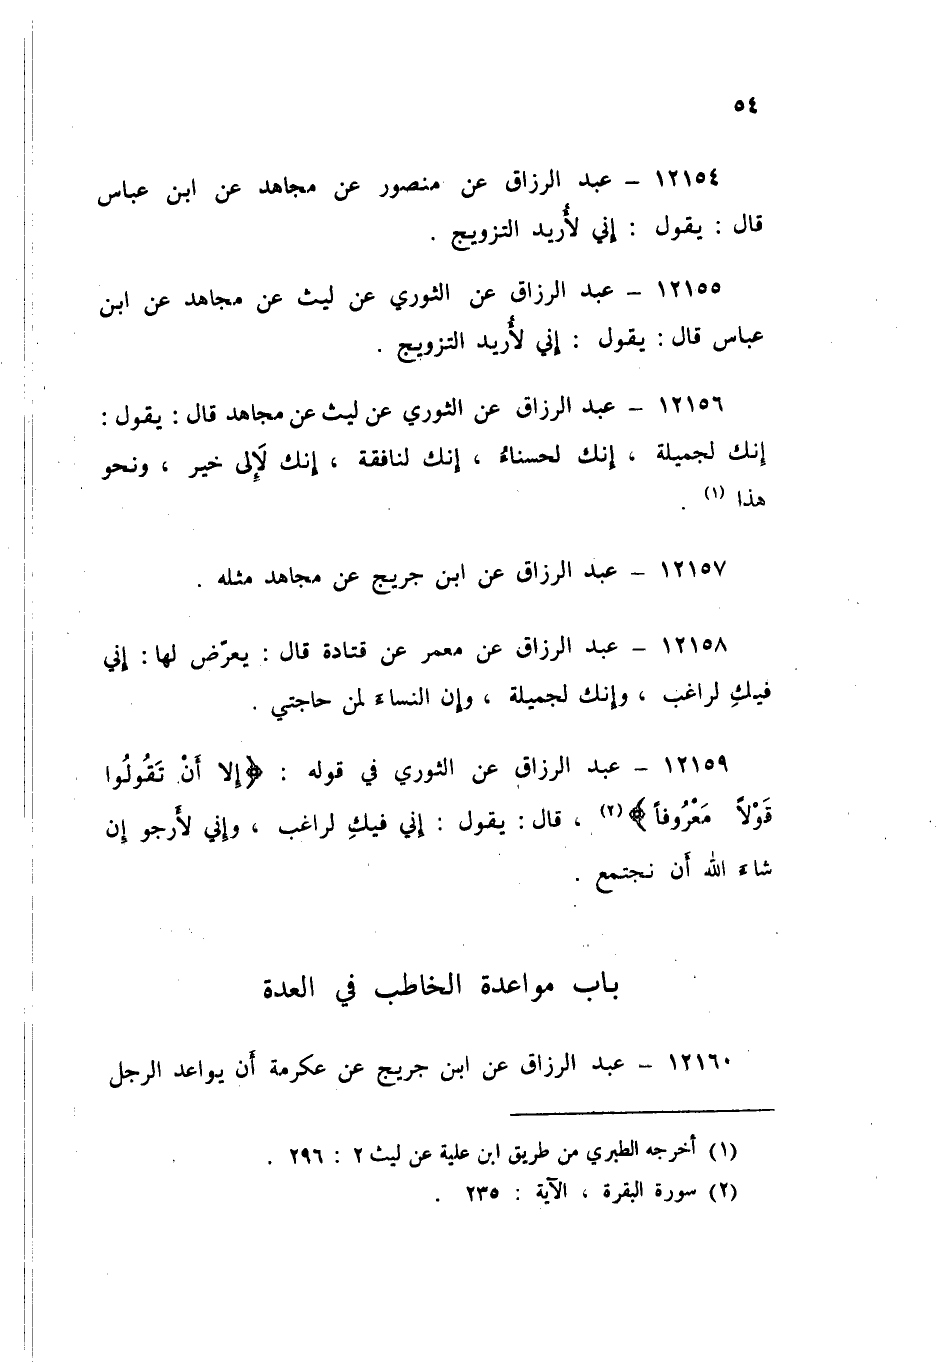 ٥٤
١٢١٥٤ – عبد الرزاق عن منصور عن مجاهد عن ابن عباس
قال : يقول : إني لأُريد التزويج .
١٢١٥٥ – عبد الرزاق عن الثوري عن ليث عن مجاهد عن ابن
عباس قال : يقول : إني لأُريد التزويج .
١٢١٥٦ – عبد الرزاق عن الثوري عن ليث عن مجاهد قال : يقول :
إنك لجميلة ، إنك لحسناءُ ، إنك لنافقة ، إنك لَإِلى خير ، ونحو
هذا (١) .
١٢١٥٧ – عبد الرزاق عن ابن جريج عن مجاهد مثله .
١٢١٥٨ – عبد الرزاق عن معمر عن قتادة قال : يعرّض لها : إني
فيكِ لراغب ، وإنك لجميلة ، وإن النساءَ لمن حاجتي .
١٢١٥٩ – عبد الرزاق عن الثوري في قوله : ﴿إلا أَنْ تَقُولُوا
قَوْلاً مَعْرُوفاً﴾(٢) ، قال : يقول : إني فيكِ لراغب ، وإني لأَرجو إن
شاءَ الله أَن نجتمع .
باب مواعدة الخاطب في العدة
١٢١٦٠ – عبد الرزاق عن ابن جريج عن عكرمة أَن يواعد الرجل
(١) أخرجه الطبري من طريق ابن علية عن ليث ٢ : ٢٩٦ .
(٢) سورة البقرة ، الآية : ٢٣٥ .